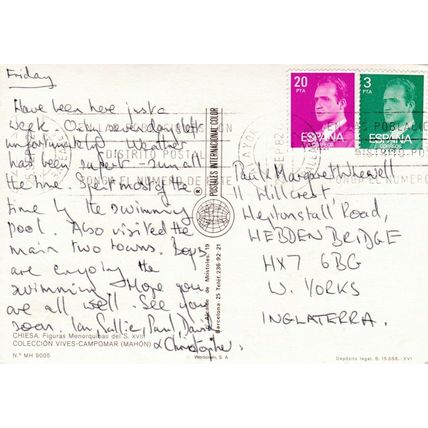 Friday
Have been here just a
week. Only seven days left
unfortunately. Weather
has been superb - sun all
the time. Spent most of the
time by the swimming
pool. Also visited the
main two towns. Boys
are enjoying the
swimming. Hope you
are all well. See you
soon. Ian, Sallie, Paul, David
& Christopher.
CHIESA. Figuras Menorquinas del S. XVIII
COLECCIÓN VIVES-CAMPOMAR (MAHÓN)
N.º MH 9005
POSTALES INTERNACIONAL COLOR
Móstoles, 19
Barcelona-25 Telef. 236-92-21
20
PTA
ESPAÑA
CORREOS
3
PTA
ESPAÑA
CORREOS
DISTRITO POSTAL
PONGA EL NUMERO DE
Paul & Margaret Whewell
11 Hillcrest,
Heptonstall Road,
HEBDEN BRIDGE
HX7 6BG
W. YORKS
INGLATERRA.
Depósito legal. B. 15.558 - XVI